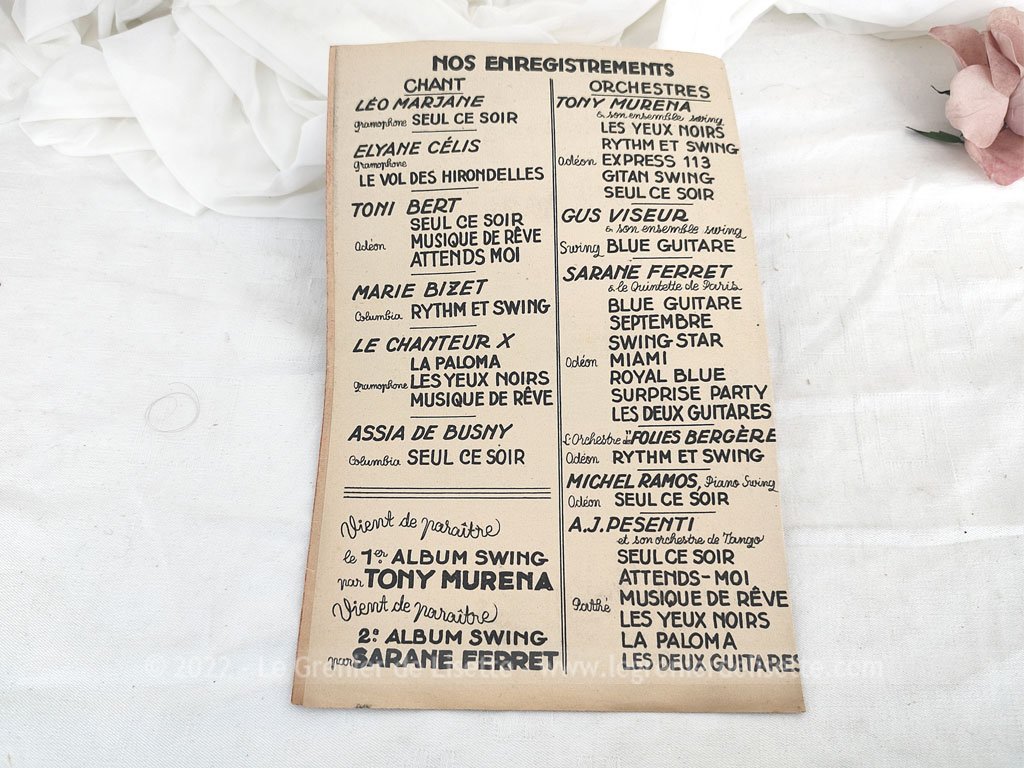 NOS ENREGISTREMENTS
CHANT
LÉO MARJANE
gramophone SEUL CE SOIR
ELYANE CÉLIS
gramophone
LE VOL DES HIRONDELLES
TONI BERT
SEUL CE SOIR
Odéon MUSIQUE DE RÊVE
ATTENDS MOI
MARIE BIZET
Columbia RYTHM ET SWING
LE CHANTEUR X
LA PALOMA
gramophone LES YEUX NOIRS
MUSIQUE DE RÊVE
ASSIA DE BUSNY
Columbia SEUL CE SOIR
Vient de paraître
le 1er ALBUM SWING
par TONY MURENA
Vient de paraître
2e ALBUM SWING
par SARANE FERRET
ORCHESTRES
TONY MURENA
& son ensemble swing
LES YEUX NOIRS
RYTHM ET SWING
Odéon EXPRESS 113
GITAN SWING
SEUL CE SOIR
GUS VISEUR
& son ensemble swing
Swing BLUE GUITARE
SARANE FERRET
& le Quintette de Paris
BLUE GUITARE
SEPTEMBRE
SWING STAR
Odéon MIAMI
ROYAL BLUE
SURPRISE PARTY
LES DEUX GUITARES
L'Orchestre des "FOLIES BERGÈRE
Odéon RYTHM ET SWING
MICHEL RAMOS, Piano Swing
Odéon SEUL CE SOIR
A.J. PESENTI
et son orchestre de Tango
SEUL CE SOIR
ATTENDS-MOI
Pathé MUSIQUE DE RÊVE
LES YEUX NOIRS
LA PALOMA
LES DEUX GUITARES
© 2022 - Le Grenier de Lisette - www.legrenierdelisette.com